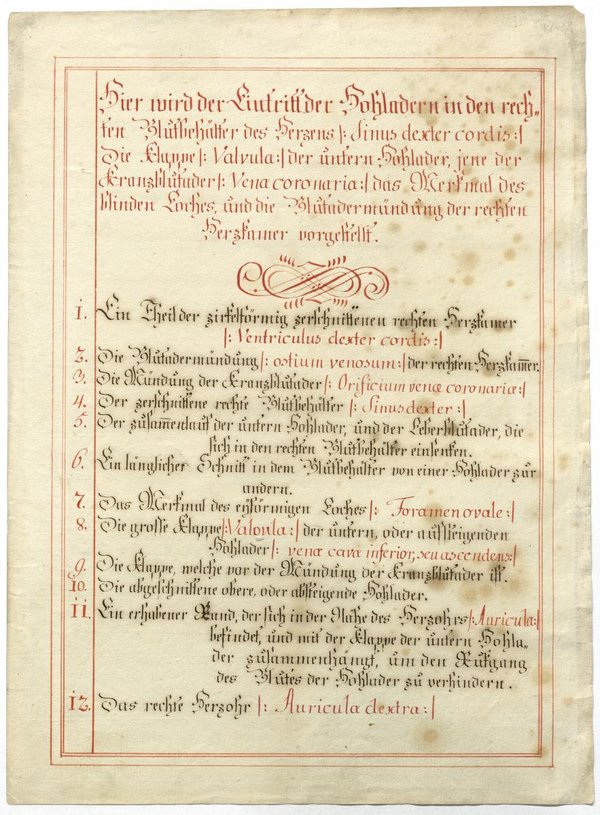 Hier wird der Eintritt der Hohladern in den rech=
ten Blutbehälter des Herzens |: Sinus dexter cordis :|
Die Klappe |: Valvula :| der untern Hohlader, jene der
Kranzblutader |: Vena coronaria :| das Merkmal des
blinden Loches, und die Blutadermündung der rechten
Herzkamer vorgestellt.
1. Ein Theil der zirkelförmig zerschnittenen rechten Herzkamer
|: Ventriculus dexter cordis :|
2. Die Blutadermündung |: ostium venosum :| der rechten Herzkam̅er.
3. Die Mündung der Kranzblutader |: Orificium venæ coronariæ :|
4. Der zerschnittene rechte Blutbehälter |: Sinus dexter :|
5. Der zusam̅enlauf der untern Hohlader, und der Leberblutader, die
sich in den rechten Blutbehälter einsenken.
6. Ein länglicher Schnitt in dem Blutbehälter von einer Hohlader zur
andern.
7. Das Merkmal des eyförmigen Loches |: Foramen ovale :|
8. Die grosse Klappe |: Valvula :| der untern, oder aufsteigenden
Hohlader |: venæ cava inferior, seu ascendens :|
9. Die Klappe, welche vor der Mündung der Kranzblutader ist.
10. Die abgeschnittene obere, oder absteigende Hohlader.
11. Ein erhabener Rand, der sich in der Nähe des Herzohrs |: Auricula :|
befindet, und mit der Klappe der untern Hohla=
der zusammenhängt, um den Rükgang
des Blutes der Hohlader zu verhindern.
12. Das rechte Herzohr |: Auricula dextra :|